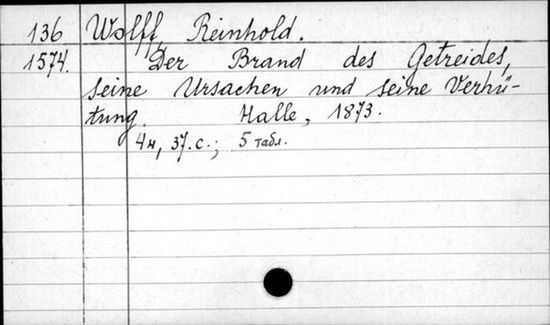 136 Wolff, Reinhold.
1574. Der Brand des Getreides,
seine Ursachen und seine Verhü-
tung. Halle, 1873.
4н, 37.с.; 5 табл.